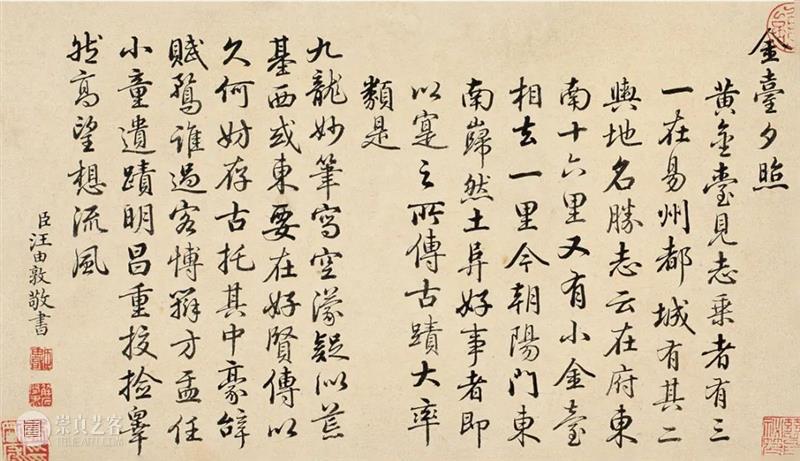 金臺夕照
黃金臺見志乘者有三
一在易州都城有其二
輿地名勝志云在府東
南十六里又有小金臺
相去一里今朝陽門東
南巋然土阜好事者即
以寔之所傳古蹟大率
類是
九龍妙筆寫空濛疑似荒
基西或東要在好賢傳以
久何妨存古托其中豪辭
賦鶩誰過客博辯方盂任
小童遺蹟明昌重校撿睪
然高望想流風
臣汪由敦敬書
崇真艺客